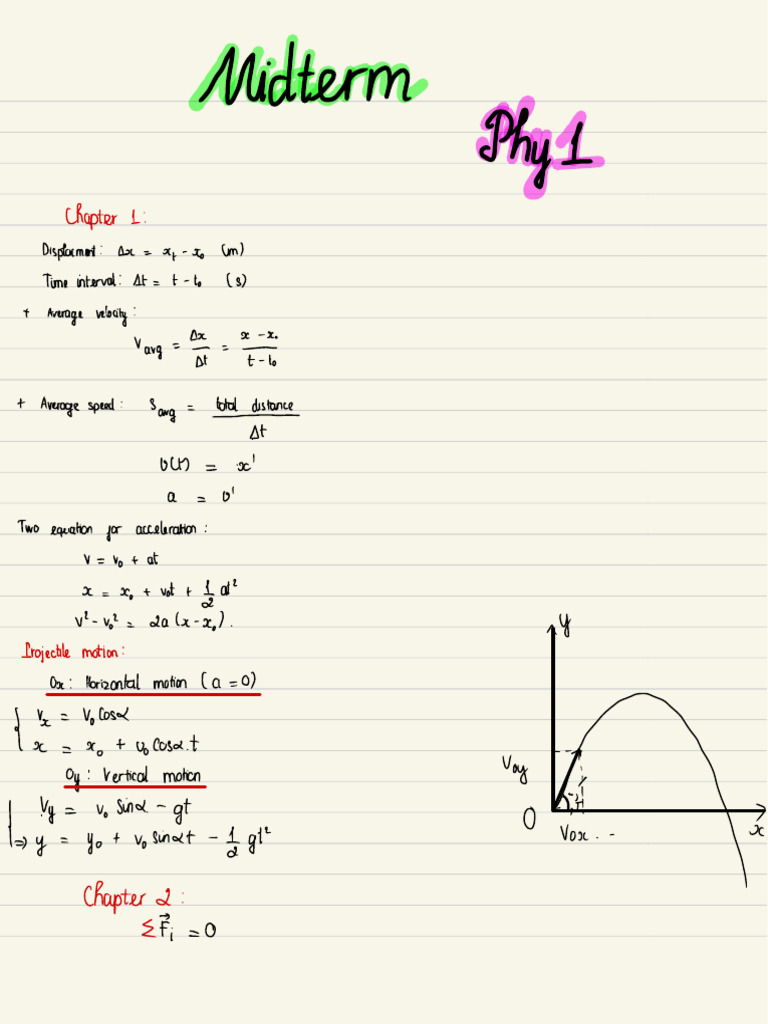 Midterm
Phy 1
Chapter 1:
Displacment: Δx = xt - x₀ (m)
Time interval: Δt = t - t₀ (s)
+ Average velocity:
Vavg = Δx/Δt = (x - x₀)/(t - t₀)
+ Average speed: Savg = total distance/Δt
v(t) = x'
a = v'
Two equation for acceleration:
v = v₀ + at
x = x₀ + v₀t + 1/2 at²
v² - v₀² = 2a(x - x₀).
Projectile motion:
Ox: Horizontal motion (a = 0)
Vx = V₀ cosα
x = x₀ + v₀ cosα.t
Oy: Vertical motion
Vy = v₀ sinα - gt
=> y = y₀ + v₀ sinαt - 1/2 gt²
y
Voy
O
Vox
x
Chapter 2:
ΣF⃗i = 0